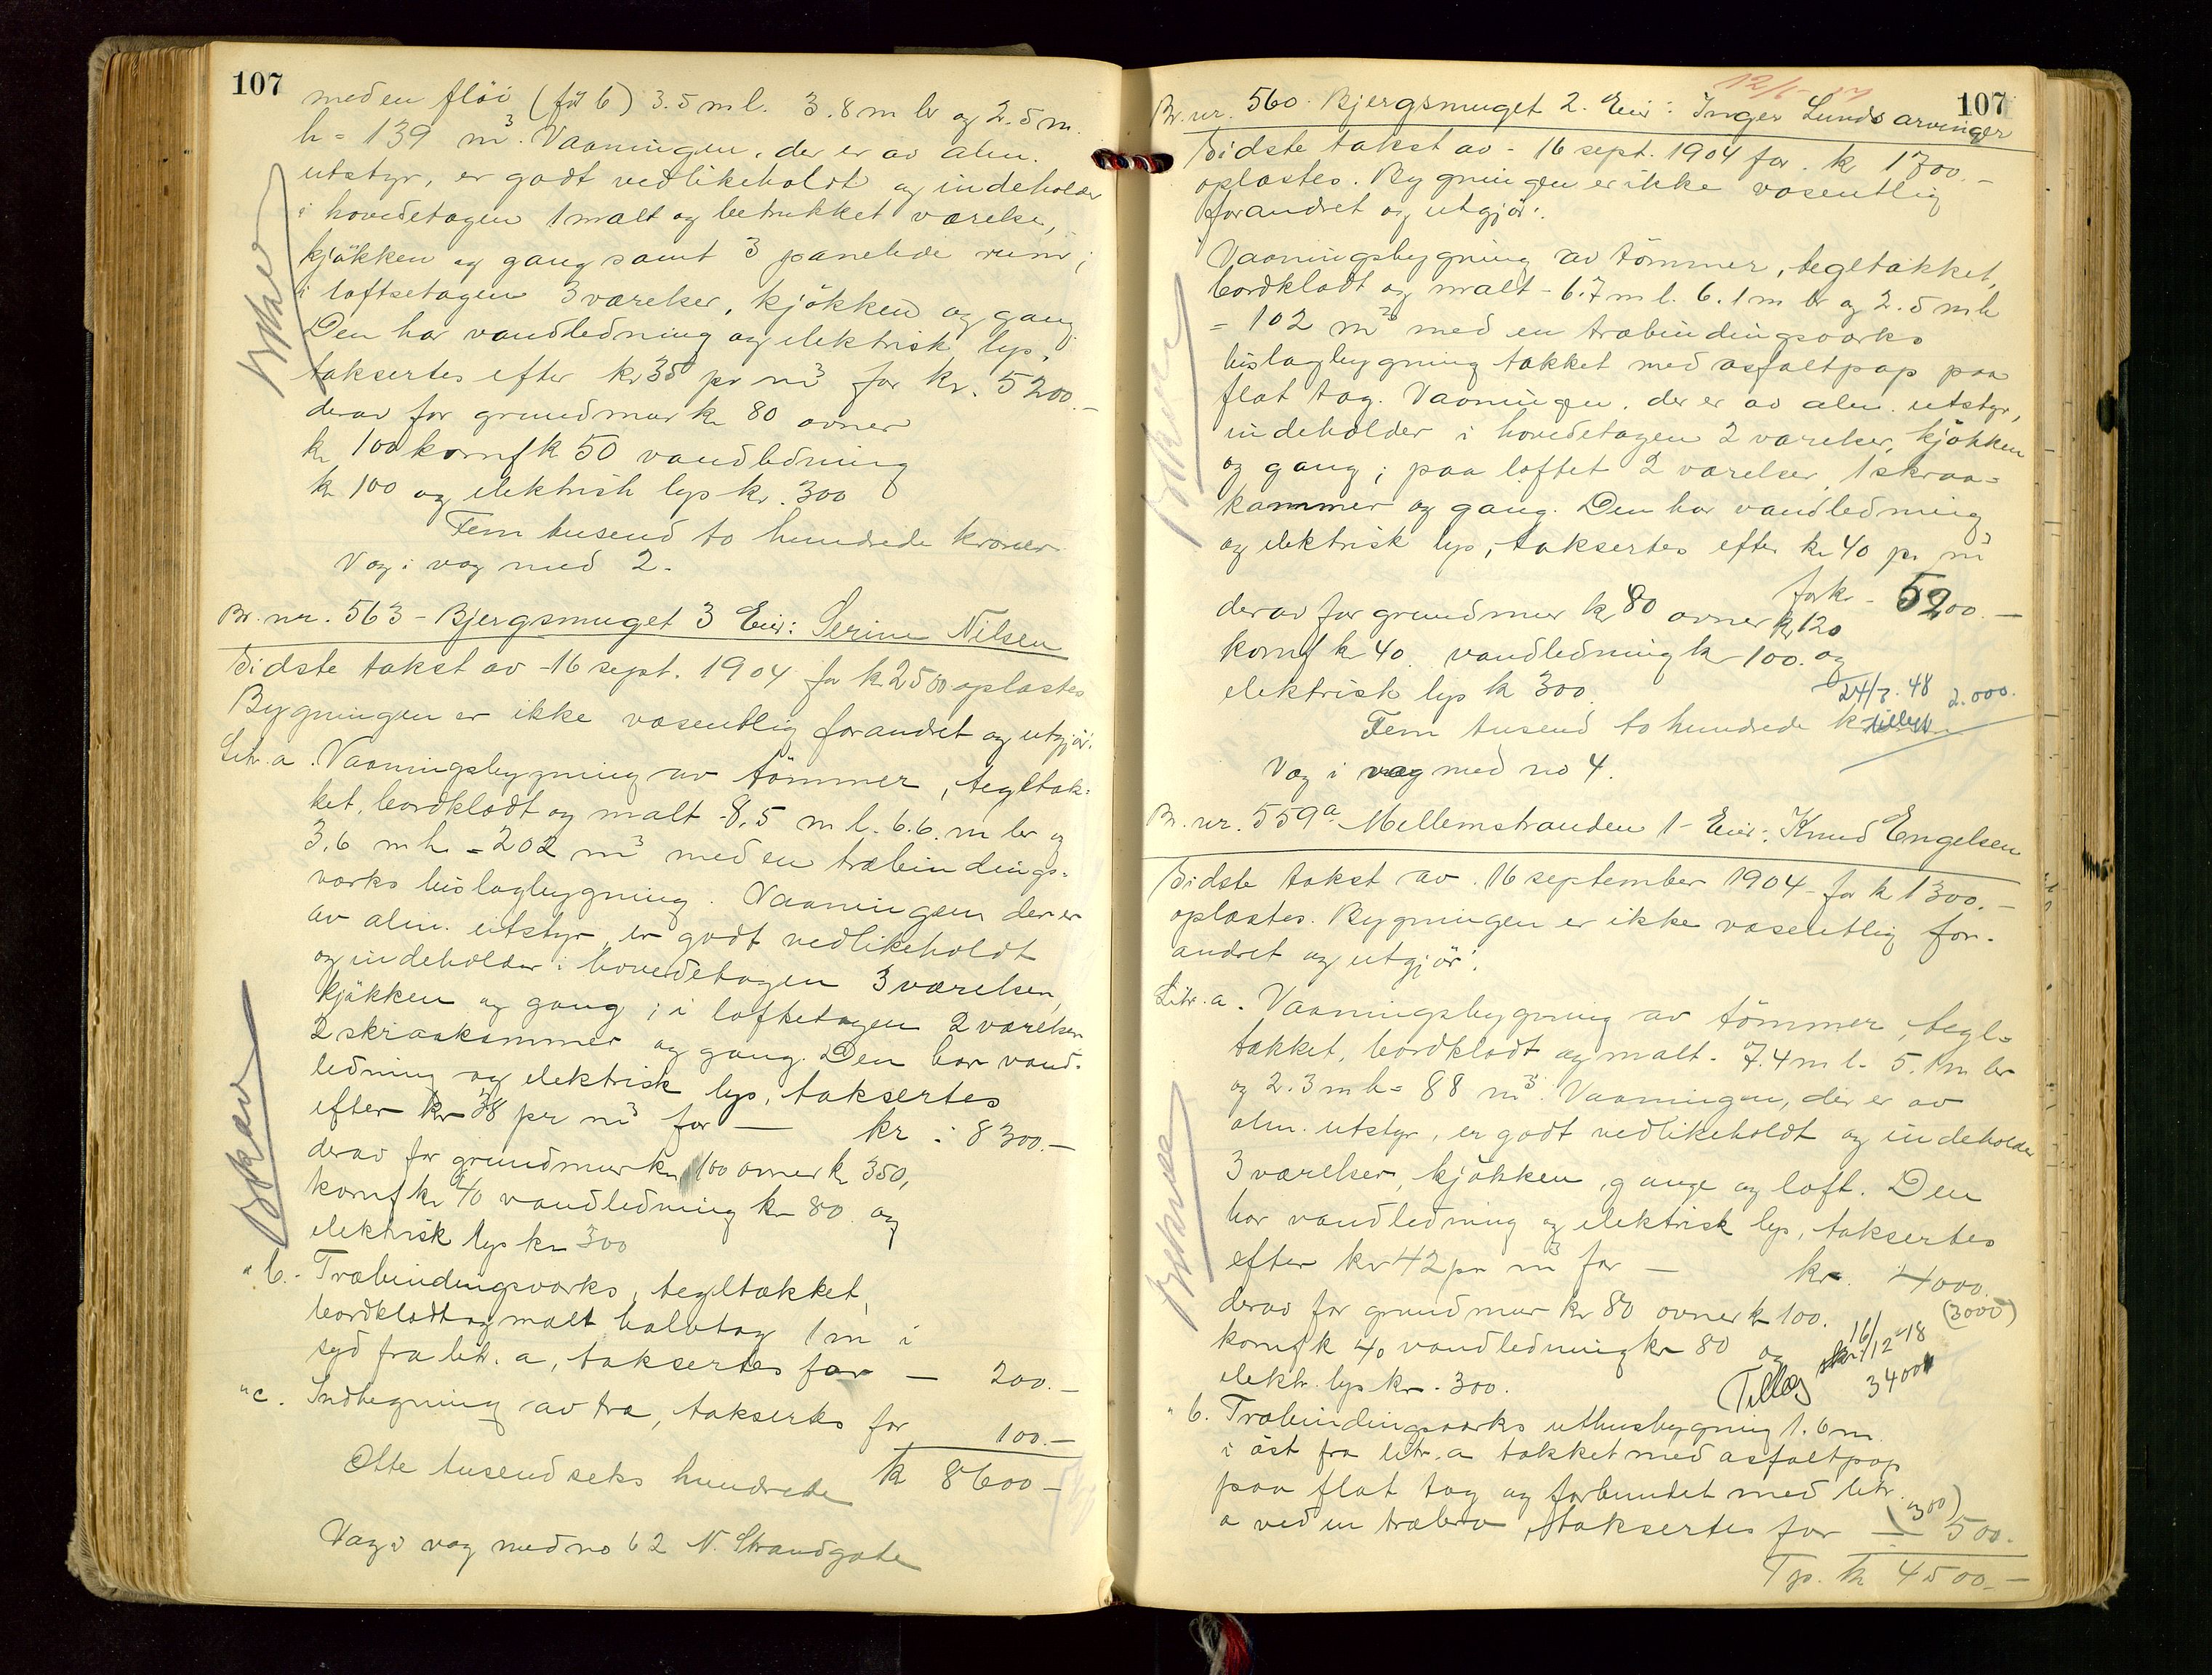 107
med en flöi (för b) 3.5 m l. 3.8 m br og 2.5 m.
h = 139 m³. Vaaningen, der er av alm.
utstyr, er godt vedlikeholdt og indeholder
i hovedetagen 1 malt og betrukket værelse,
kjøkken og gang samt 3 panelede rum;
i loftsetagen 3 værelser, kjøkken og gang.
Den har vandledning og elektrisk lys,
taksertes efter kr 38 pr m³ for kr. 5200.—
derav for grundmur kr 80 ovner
kr 100 komf k 50 vandledning
kr 100 og elektrisk lys kr. 300
Fem tusend to hundrede kroner.
Væg i væg med 2.
Br. nr. 563 - Bjergsmuget 3 Eier: Serine Nilsen
Sidste takst av - 16 sept. 1904 for kr 2500 oplæstes
Bygningen er ikke væsentlig forandret og utgjör:
Litr. a. Vaaningsbygning av tömmer, tegltæk=
ket, bordklædt og malt - 8.5 m l. 6.6. m br og
3.6 m h = 202 m³ med en træbindings-
værks bislagbygning. Vaaningen der er
av alm. utstyr, er godt vedlikeholdt
og indeholder i hovedetagen 3 værelser,
kjøkken og gang; i loftsetagen 2 værelser
2 skraakammer og gang. Den har vand-
ledning og elektrisk lys, taksertes
efter kr 38 pr m³ for — kr : 8300.—
derav for grundmur kr 100 ovner kr 350,
komf kr 40 vandledning kr 80 og
elektrisk lys kr 300
" b. - Træbindingsværks, tegltækket,
bordklædt og malt halvtag 1 m i
syd fra litr. a, taksertes for — 200.—
" c. Indhegning av træ, taksertes for 100.—
Otte tusend seks hundrede k 8600—
Væg i væg med no 62 N. Strandgate
107
Br. nr. 560. Bjergsmuget 2. Eier: Inger Lunds arvinger
Sidste takst av - 16 sept. 1904 for kr 1700.—
oplæstes. Bygningen er ikke væsentlig
forandret og utgjör:
Vaaningsbygning av tömmer, tegltækket,
bordklædt og malt - 6.7 m l. 6.1 m br og 2.5 m h
= 102 m³ med en træbindingsværks
bislagbygning tækket med asfaltpap paa
flat tag. Vaaningen, der er av alm. utstyr,
indeholder i hovedetagen 2 værelser, kjøkken
og gang; paa loftet 2 værelser, 1 skraa=
kammer og gang. Den har vandledning
og elektrisk lys, taksertes efter kr 40 pr m³
for kr - 5200.—
derav for grundmur kr 80 ovner kr 120
komf kr 40. vandledning kr 100. og
elektrisk lys k 300.
24/3. 48 2.000.
Fem tusend to hundrede k
Væg i væg med no 4.
Br. nr. 559a Mellemstranden 1 - Eier: Knud Engelsen
Sidste takst av. 16 september 1904 - for k 1300.—
oplæstes. Bygningen er ikke væsentlig for-
andret og utgjör:
Litr. a. Vaaningsbygning av tömmer, tegl=
tækket, bordklædt og malt - 7.4 m l. 5.1 m br
og 2.3 m h = 88 m³. Vaaningen, der er av
alm. utstyr, er godt vedlikeholdt og indeholder
3 værelser, kjøkken, gange og loft. Den
har vandledning og elektrisk lys, taksertes
efter kr 42 pr m³ for — kr. 4000.
(3000)
derav for grundmur kr 80 ovner k 100.
komf k 40 vandledning kr 80 og
elektr. lys kr. 300.
Tillæg 16/12-18
3400
" b. Træbindingsværks uthusbygning 1.6 m.
i öst fra litr. a tækket med asfaltpap
paa flat tag og forbundet med litr.
a ved en træbro, taksertes for — 500.
(300)
Tp. kr 4500.—